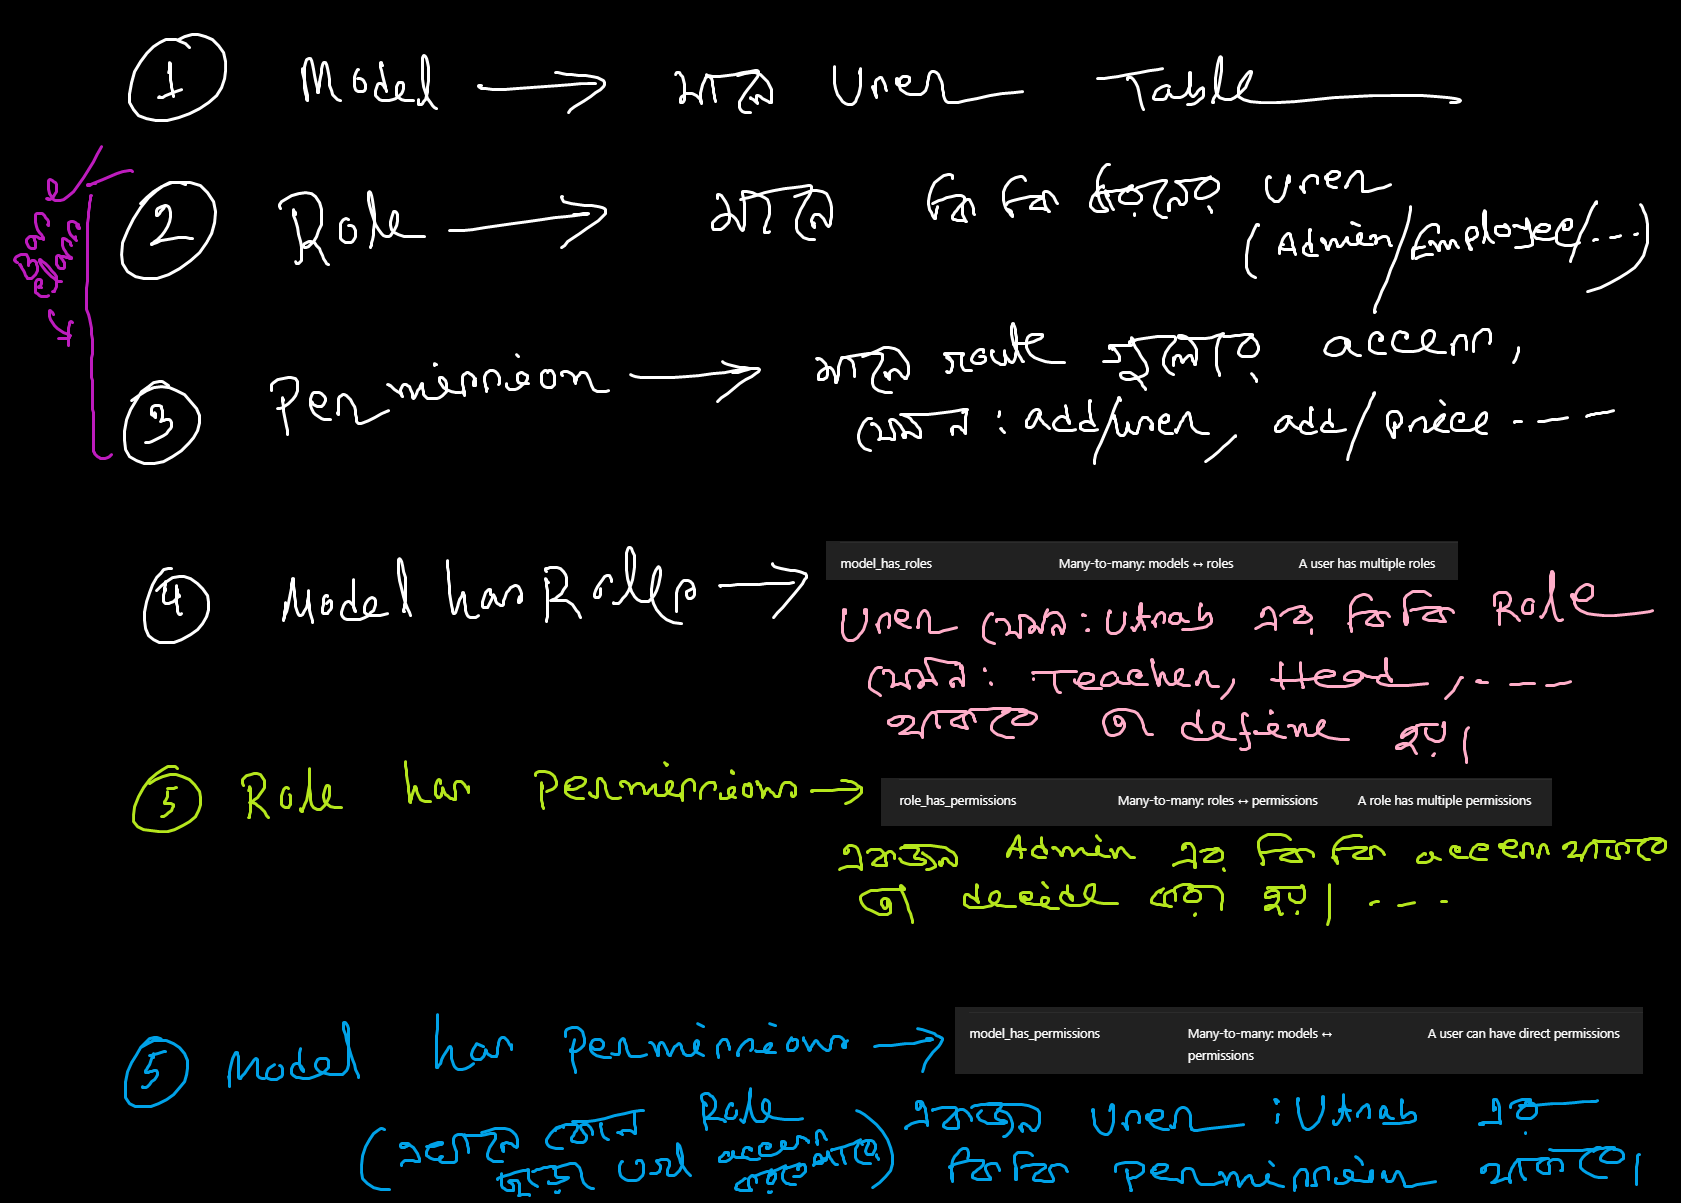 1 Model → মানে User Table
2 Role → মানে কি কি ধরনের User
(Admin/Employee/...)
3 Permission → মানে route গুলোর access,
যেমন : add/user, add/price ----
Base class
4 Model has Roles →
model_has_roles Many-to-many: models ↔ roles A user has multiple roles
User যেমন : Utnab এর কি কি Role
যেমন : Teacher, Head, ----
থাকবে তা define হয়।
5 Role has Permissions →
role_has_permissions Many-to-many: roles ↔ permissions A role has multiple permissions
একজন Admin এর কি কি access থাকবে
তা decide করা হয়। ---
5 Model has Permissions →
model_has_permissions Many-to-many: models ↔ permissions A user can have direct permissions
(এখানে কোন Role
ছাড়া Url access
করতে পারবে)
একজন User : Utnab এর
কি কি permission থাকবে।